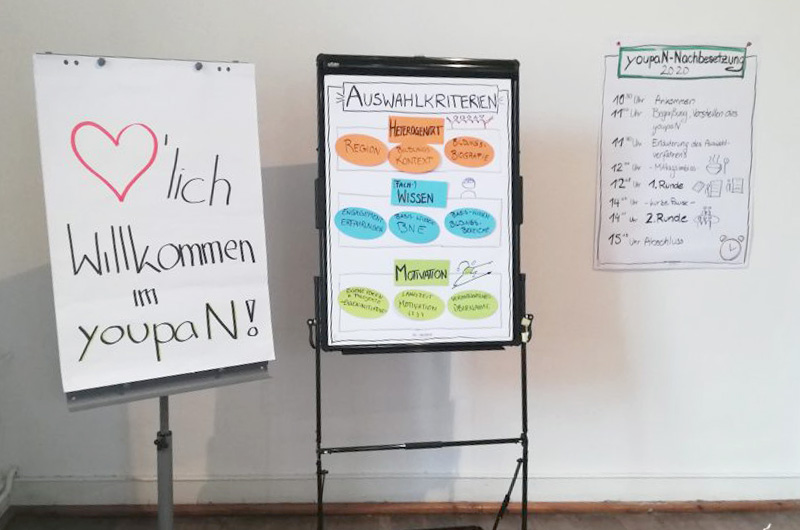 'lich
Willkommen
im
youpaN!
AUSWAHLKRITERIEN
HETEROGENITÄT
REGION
BILDUNGS-
KONTEXT
BILDUNGS-
BIOGRAFIE
(FACH-)
WISSEN
ENGAGEMENT
ERFAHRUNGEN
BASIS WISSEN
BNE
BASIS-WISSEN
BILDUNGS-
BEREICHE
MOTIVATION
EIGENE IDEEN
& PROJEKTE
LANGZEIT
MOTIVATION
!!!!
VERANTWORTUNGS
ÜBERNAHME
youpaN-Nachbesetzung
2020
Uhr Ankommen
Uhr Begrüßung, Vorstellen des
youpaN
11 30 Uhr Erläuterung des Auswahl-
verfahrens
Uhr - Mittagsimbiss -
Uhr 1. Runde
Uhr - kurze Pause -
Uhr 2. Runde
Uhr Abschluss